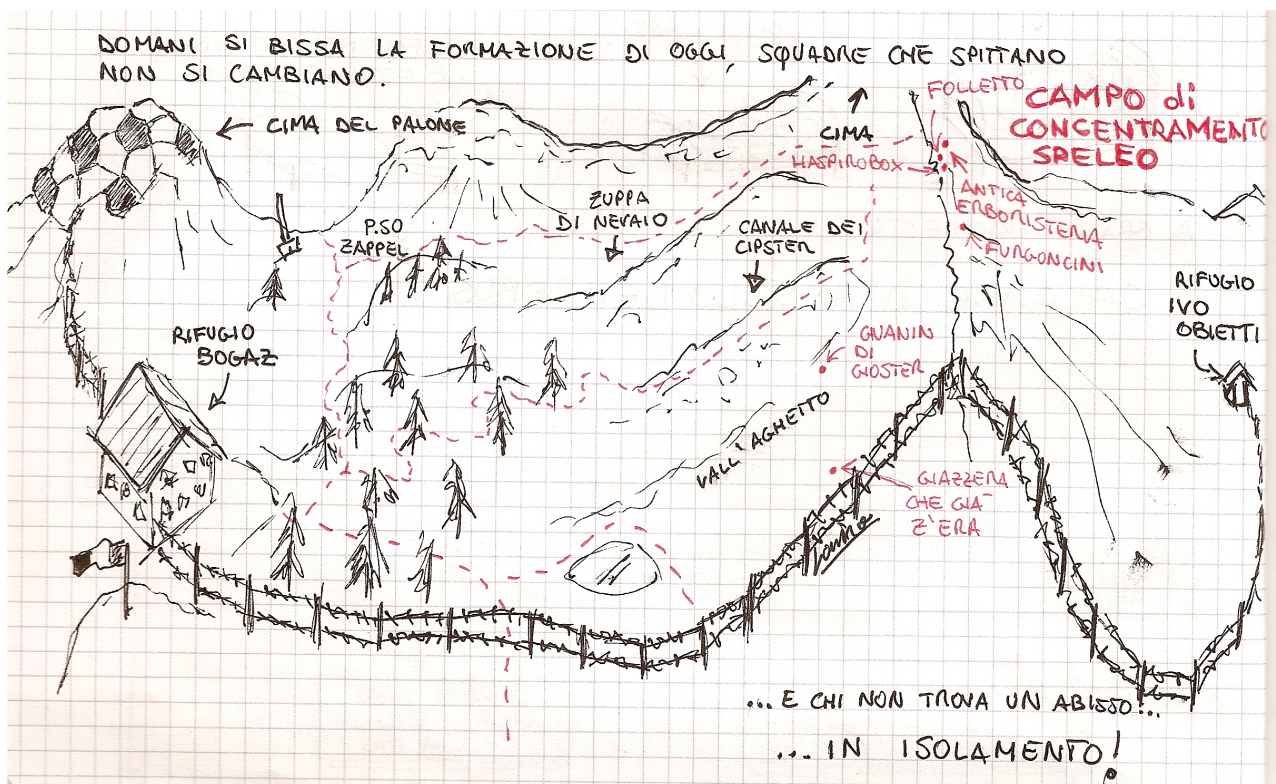 DOMANI SI BISSA LA FORMAZIONE DI OGGI, SQUADRE CHE SPITTANO
NON SI CAMBIANO.
FOLLETTO
CAMPO di
CONCENTRAMENTO
SPELEO
CIMA DEL PALONE
CIMA
HASPIROBOX
ANTICA
ERBORISTERIA
FURGONCINI
P.SO
ZAPPEL
ZUPPA
DI NEVAIO
CANALE DEI
CIPSTER
RIFUGIO
IVO
OBIETTI
RIFUGIO
BOGAZ
GNANIN
DI
GIOSTER
VALL'AGHETTO
GIAZZERA
CHE GIA'
Z'ERA
... E CHI NON TROVA UN ABISSO...
... IN ISOLAMENTO!